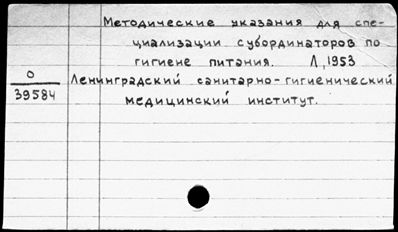 Методические указания для спе-
циализации субординаторов по
гигиене питания. Л, 1953
О
39584
Ленинградский санитарно-гигиенический
медицинский институт.